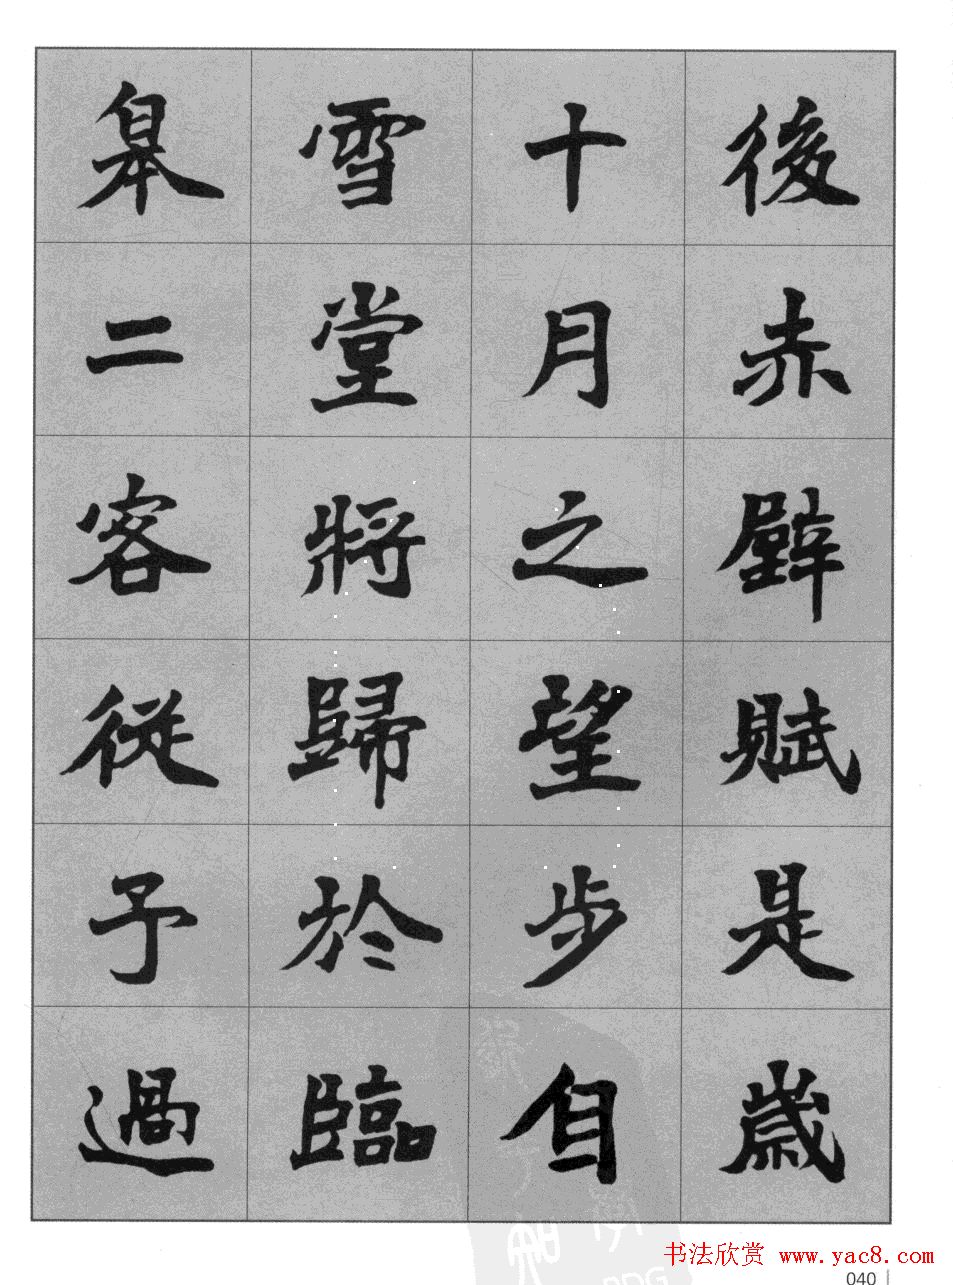 後赤壁賦是歲
十月之望步自
雪堂將歸於臨
皋二客從予過
书法欣赏 www.yac8.com
040